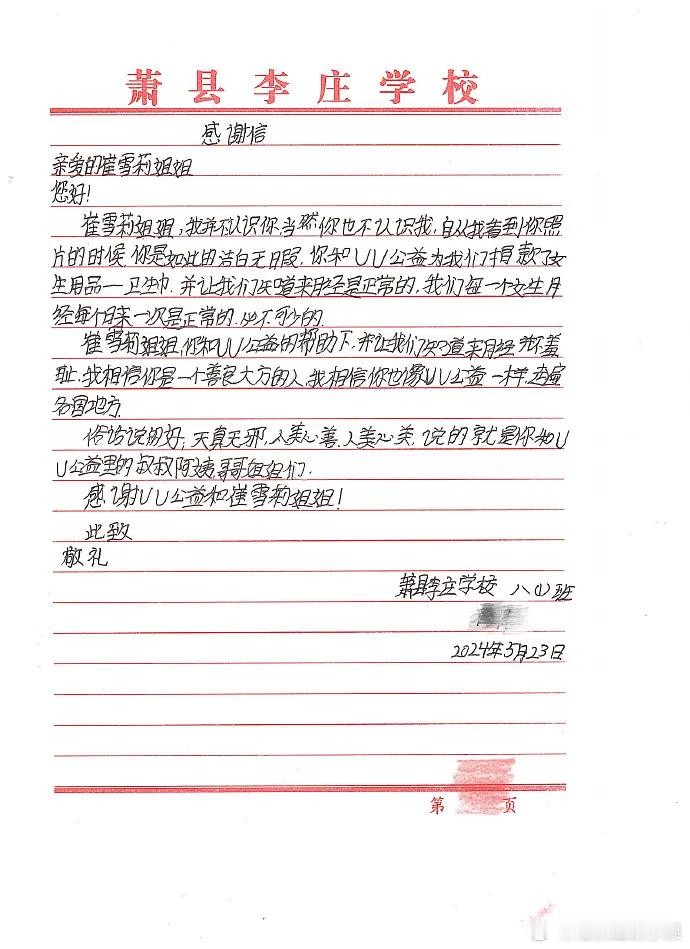 萧县李庄学校
感谢信
亲爱的崔雪莉姐姐
您好!
崔雪莉姐姐,我并不认识你,当然你也不认识我,自从我看到你照
片的时候,你是如此的洁白无日段,你和UU公益为我们捐款了女
生用品一卫生巾.并让我们知道来月经是正常的,我们每一个女生月
经每个月来一次是正常的.必不可少的.
崔雪莉姐姐,你和UU公益的帮助下.并让我们知道来月经并不羞
耻.我相信你是一个善良大方的人,我相信你也像UU公益一样,走遍
各国地方.
俗话说的好;天真无邪,人美心善.人美心美.说的就是你和U
U公益里的叔叔阿姨哥哥姐姐们.
感谢UU公益和崔雪莉姐姐!
此致
敬礼
萧县李庄学校 八(1)班
2024年5月23日
第 页